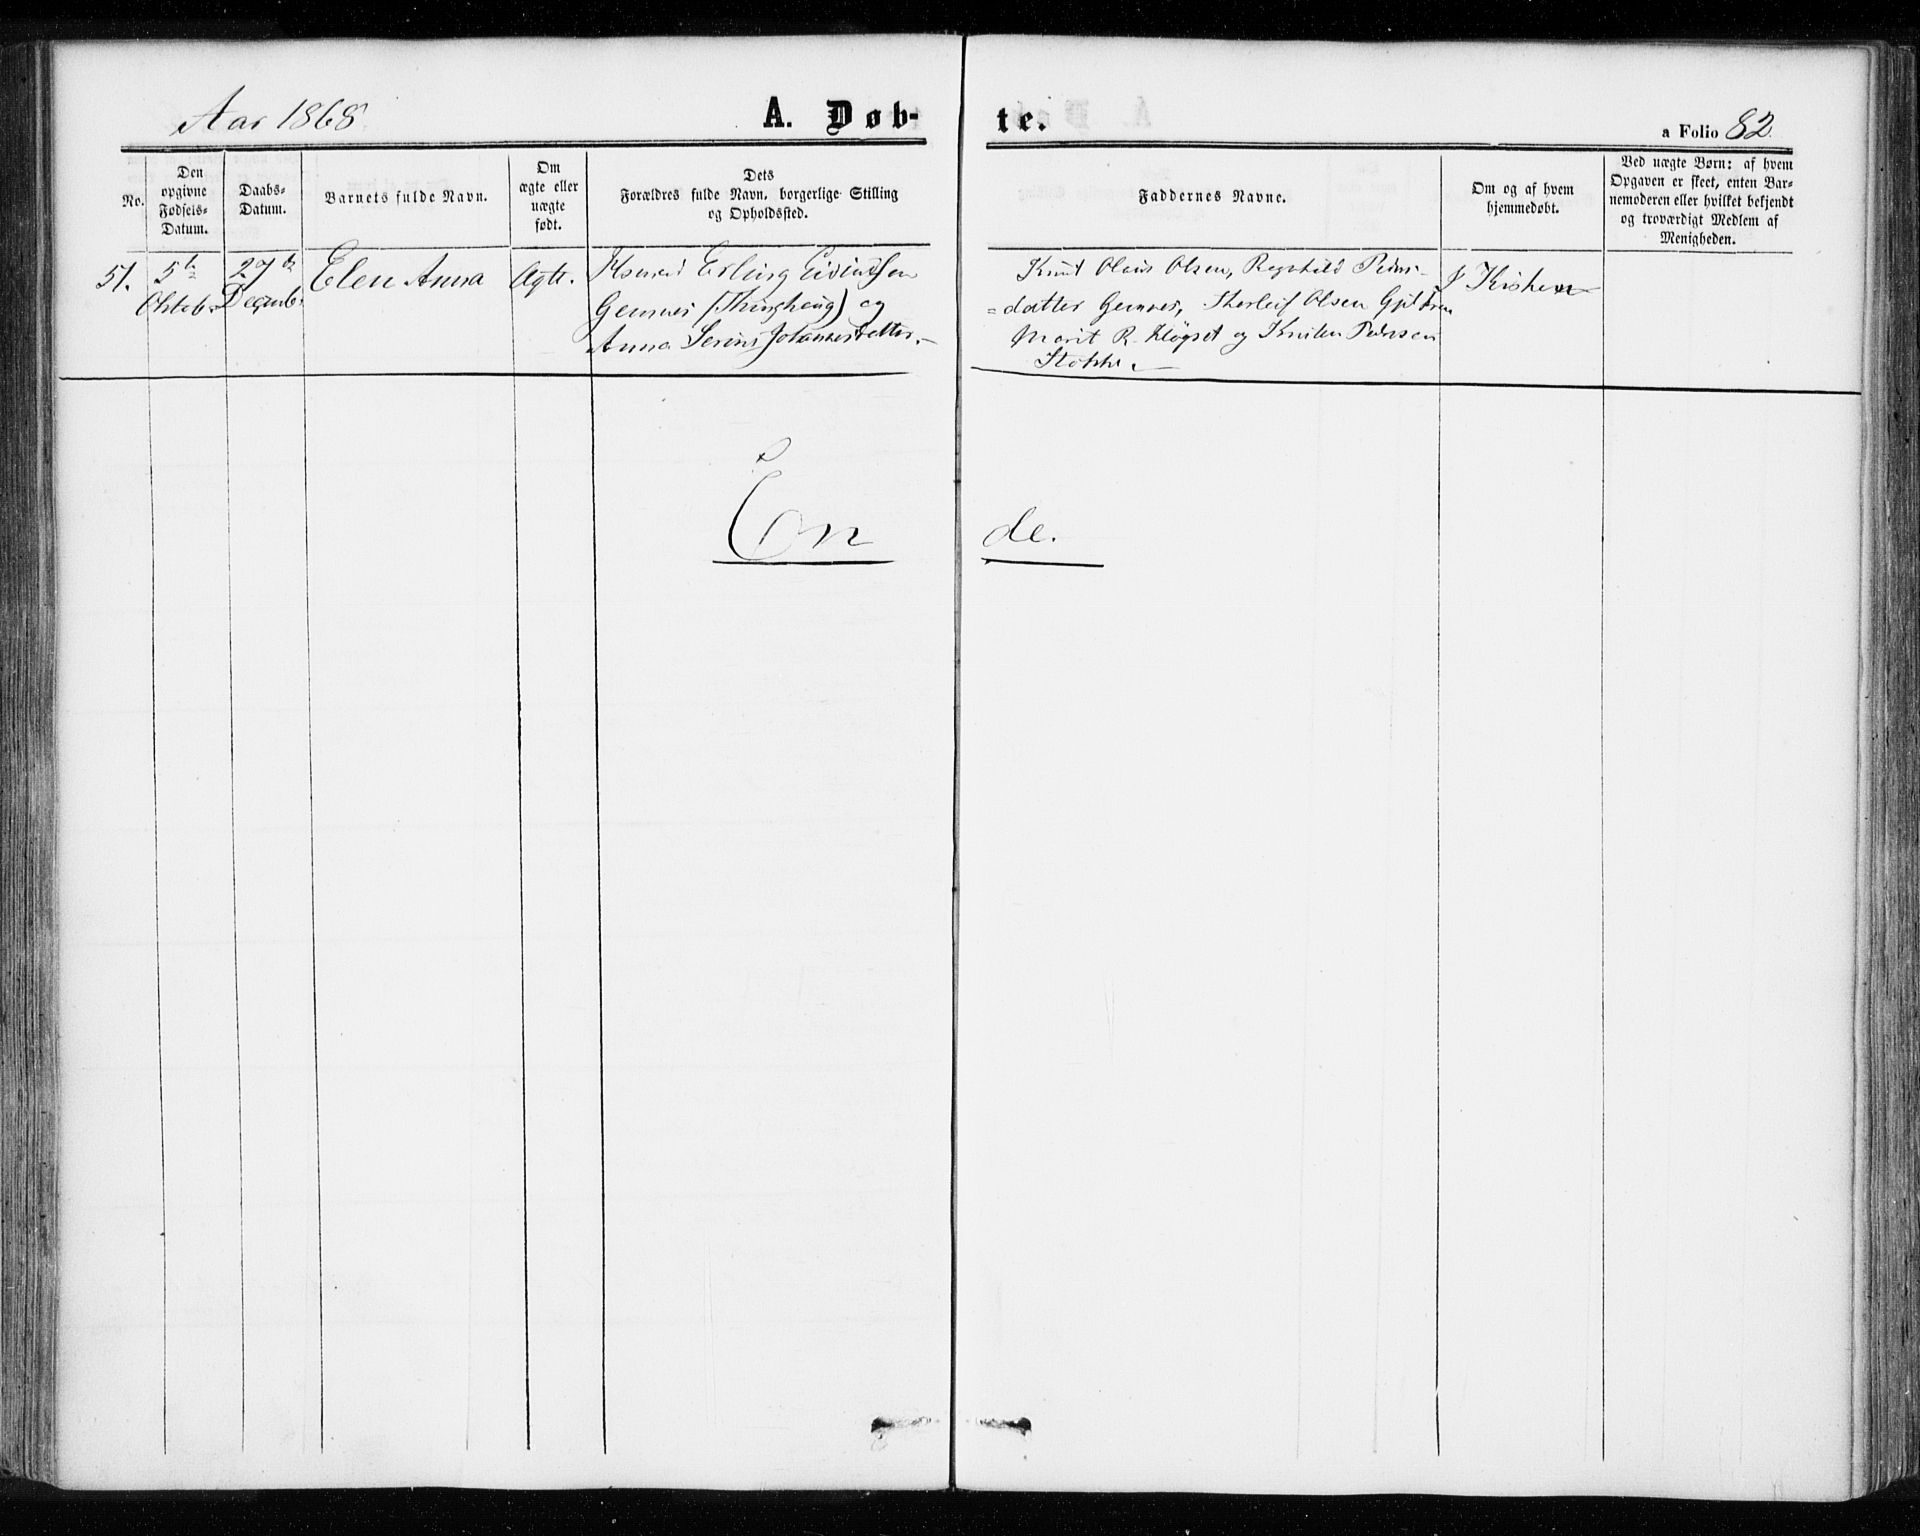 Aar 1868
A. Døb-
te.
a Folio 82.
No.
Den
opgivne
Fødsels-
Datum.
Daabs-
Datum.
Barnets fulde Navn.
Om
ægte eller
uægte
født.
Dets
Forældres fulde Navn, borgerlige Stilling
og Opholdssted.
Faddernes Navne.
Om og af hvem
hjemmedøbt.
Ved uægte Børn: af hvem
Opgaven er skeet, enten Bar-
nemoderen eller hvilket bekjendt
og troværdigt Medlem af
Menigheden.
51.
5te
Oktob.
27de
Decemb.
Elen Anna
Ægte.
Erling Eivindsen
Gemnes (Thinghaug) og
Anna Serine Johannesdatter.
Knut Olaus Olsen, Ragnhild Peders-
=datter Gemnes, Thorleif Olsen
Marit R. Høgset og Kristen Pedersen
Stokke.
I Kirken
En
de.